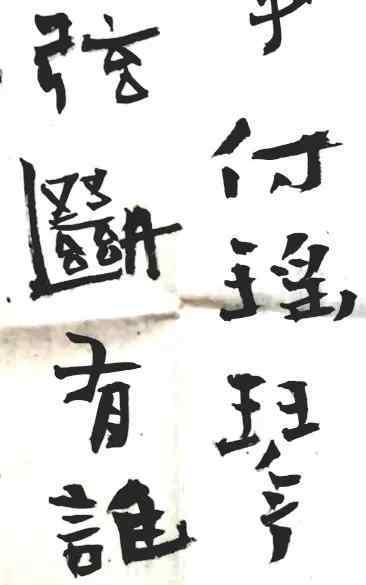 付瑤琴
弦斷有誰